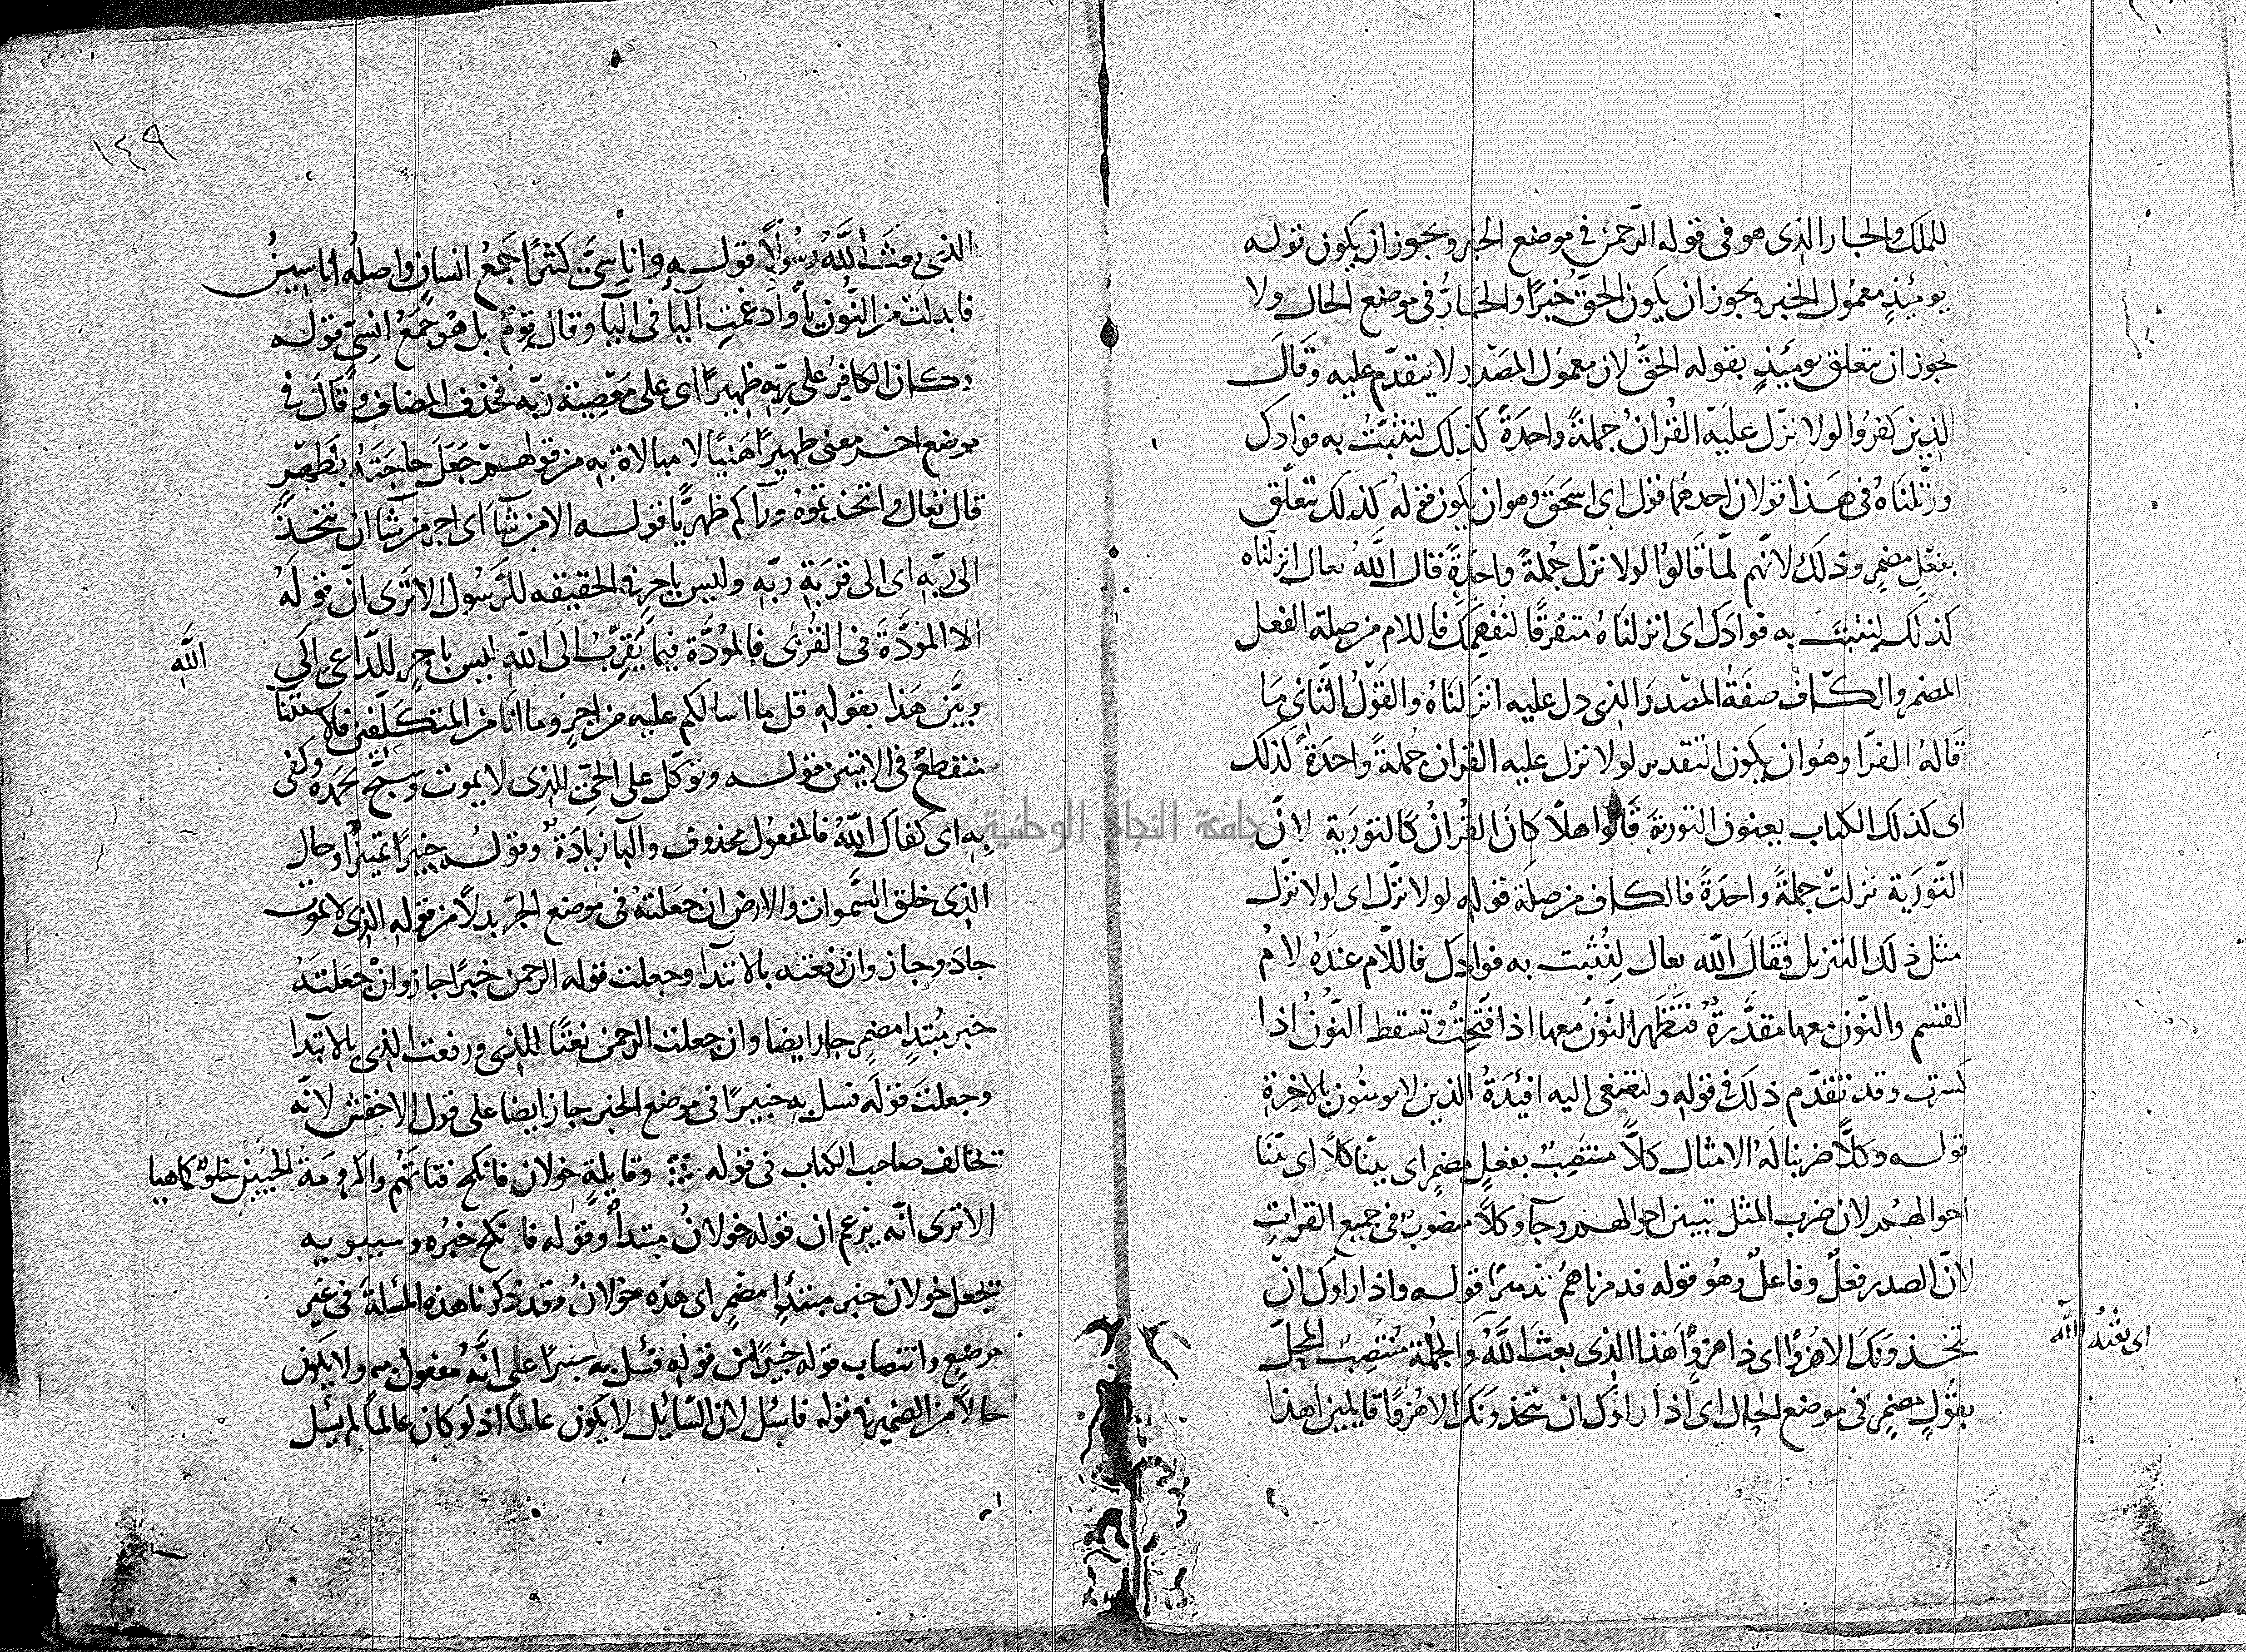 للملك والجار الذى هو فى قوله الرّحمن فى موضع الخبر ويجوز ان يكون قوله
يومئذٍ معمُول الخبر ويجوز ان يكون الحقّ خُبرًا والجَارُّ فى موضع الحال ولا
يجوز ان يتعلق يومئذٍ بقوله الحقُّ لان معمُول المصَدر لا يتقدّم عليه وقَالَ
الذين كفرُوا لولا نزّل علَيه القُرانُ جملةً واحدَةً كذلك لنثبّتُ به فوادك
ورتّلناه فى هَذا قولان احدهما قول ابى اسحَق وهو ان يكون قولهُ كذلك يتعلّق
بفعْلٍ مضمٍر وذلك لانّهم لمّا قَالوُا لولا نزّل جُملةً واحدةً قال اللَّهُ تعالى انزلناه
كذلك لِنثبتَ به فوادَك اى انزلنَاهُ متفرقًا لنُفهمَك فاللام من صلة الفعل
المضمر والكّاف صفَةُ المصْدر الذى دل عليه انزَلنَاهُ والقَوْلُ الثّانى مَا
قَالَهُ الفرّا وهُو ان يكون التقدير لولا نزل عليه القران جُملةً واحدَةً كذلك
اى كذلك الكتاب يعنون التورية قَالوا هلاّ كانَ القُرانُ كالتورَية لانّ
التّورَية نزلتْ جملةً واحدَةً فالكاف من صلَة قوله لولا نزّل اى لولا نزّل
مثل ذلك التنزيل فقَالَ اللّه تعالى لِنُثبت به فوادك فاللّام عندَهُ لامُ
القسم والنّون معها مقدَّرةٌ فتَظهر النّون معها اذا فتَحْتَ وتسقط النّونُ اذا
كسرت وقد تقدّم ذلكَ فى قولهِ ولتصغى اليه افئدَةُ الذين لا يومنُون بالاخرة
قوله وكلًّا ضربنا لَهُ الامثال كلًّا منتصِبٌ بفعلٍ مضمٍر اى بيّنا كلاًّ اى بيّنَا
احوالهم لان ضرب المثل تبيين احوالهم وجآ وكلًّا منصوبٌ فى جميع القرات
لانّ الصدر فعلٌ وفاعلٌ وهُو قوله فدمرناهم تدميرًا قوله واذا راوك انْ
يتخذونَكَ الا هُزُوًا اى ذا هزوٍ أهَذا الذى بعثَ اللَّهُ والجُملة منتَصِبَةُ المحلّ
اى بعثهُ اللَّه
بقولٍ مضمٍر فى موضع الحال اى اذا راوك ان يتخذونَكَ الا هُزُوًا قايلين اهذا
١٤٩
الذى بعَثَ اللَّهُ رسُولاً قوله واناسىّ كثيرًا جَمعُ انسانٍ واصلُه اناسينُ
فابدلتْ من النُّون يآ وادغمتِ اليآ فى اليآ وقال قومٌ بل هُو جَمعُ انسىّ قوله
وكان الكافرُ على ربّهِ ظهيرًا اى على مَعْصِية ربّه فحذف المضاف وقَالَ فى
موضع اخر معنى ظهيرًا هَيّنًا لا مبالاة به من قولهم جَعَلَ حاجَتَهُ بظَهْر
قال تعالى واتخذتموهُ وراكم ظهريًّا قوله الا من شآ اى اجر من شآ انْ يتخذ
الى ربّه اى الى قربَة ربّه وليس باجرٍ فى الحقيقه للرَّسُول الا ترَى انّ قوْلَهُ
الا المَودَّةَ فى القُربى فالموَدّة فيما يُقرِّبُ الَى اللّه ليس باجرٍ للدّاعى الَى
اللَّه
وبيَّن هَذا بقولهِ قل ما اسالكم عليه من اجرٍ وما انَا من المتكلّفين فالاستثنا
منقطعٌ فى الايتين قوله وتوكّل على الحىّ الذى لا يموت وسبّح بحمدهِ وكفى
بِه اى كفاك اللّهُ فالمفعُول محذوف والبا زيادَةٌ وقولُه خبيرًا تمييزٌ او حال
الذى خلق السَّموات والارض ان جعَلتهُ فى موضع الجرّ بدلاً من قوله الذى لا يموت
جادَ وجاز وان رفعته بالابتدا وجعلت قوله الرحمن خبرًا جاز وانْ جعَلتَهُ
خبر مُبتدٍا مضمٍر جاز ايضا وان جعلت الرحمن نعتًا للذى ورفعت الذى بالابتدا
وجعلتَ قولَه فسل به خبيرًا فى موضع الخبر جاز ايضا على قول الاخفش لانّه
يخالف صاحب الكتاب فى قوله وقايلةٍ خولان فانكح فتاتهُم واكرومَةُ الحيَّينِ خلوٌ كماهيا
الا ترى انّه يزعم ان قوله خولانُ مبتداٌ وقوله فانكح خبرُه وسيبويه
يجعل خولان خبر مبتدٍا مضمٍر اى هذه خولانُ وقد ذكرنا هذه المسئلةَ فى غَير
موضعٍ وانتصاب قوله خبيرًا من قوله فسُئل به خبيرًا على انَّهُ مفعُول به ولا يكون
حالاً من الضمير فى قوله فاسئل لان السّايل لا يكون عالمًا اذ لَو كان عالماً لم يَسئل
جامعة النجاح الوطنية